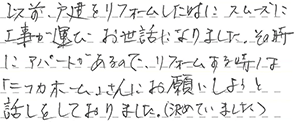 以前、戸建をリフォームした時に スムーズに
工事が運び お世話になりました。その時
に アパートがあるので、リフォームする時には
「ニッカホーム」さんにお願いしようと
話しをしておりました。(決めていました)